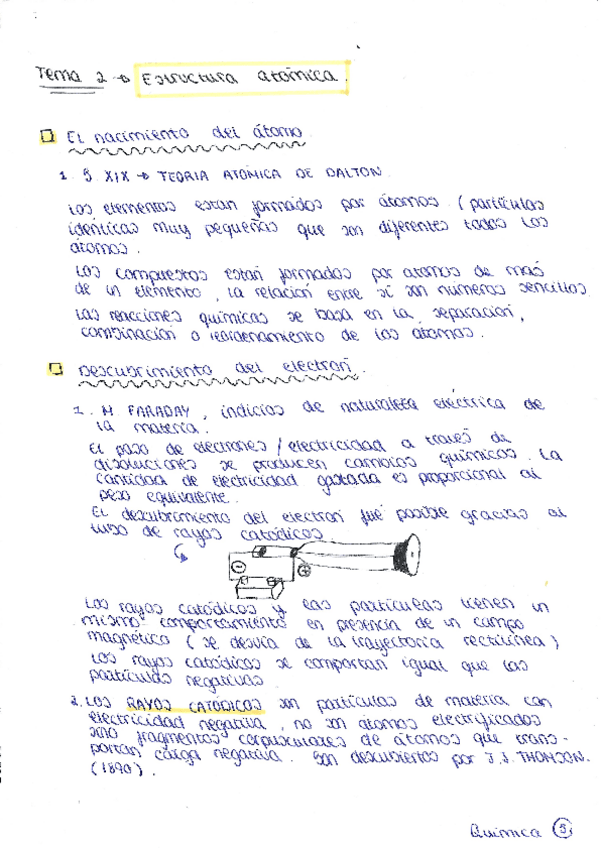 Tema 2 → Estructura atómica.
El nacimiento del átomo.
1. S XIX → TEORIA ATOMICA DE DALTON.
Los elementos están formados por átomos. (partículas
idénticas muy pequeñas que son diferentes todos los
átomos.
Los compuestos están formados por atomos de más
de un elemento, la relación entre sí son números sencillos
Las reacciones químicas se basa en la separación,
combinación o reordenamiento de los átomos.
Descubrimiento del electrón.
1. M. FARADAY, indicios de naturaleza eléctrica de
la materia.
El paso de electrones / electricidad a través de
disoluciones se producen cambios químicos. La
cantidad de electricidad gastada es proporcional al
peso equivalente.
El descubrimiento del electrón fué posible gracias al
tubo de rayos catódicos.
⊖ ⊕
Los rayos catódicos y las partículas tienen un
mismo comportamiento en presencia de un campo
magnético (se desvía de la trayectoria rectilínea)
Los rayos catódicos se comportan igual que las
partículas negativas
2. Los RAYOS CATÓDICOS son partículas de materia con
electricidad negativa, no son átomos electrificados
sino fragmentos corpusculares de átomos que trans-
portan carga negativa. Son descubiertos por J.J. THOMSON.
(1890).
Química 5